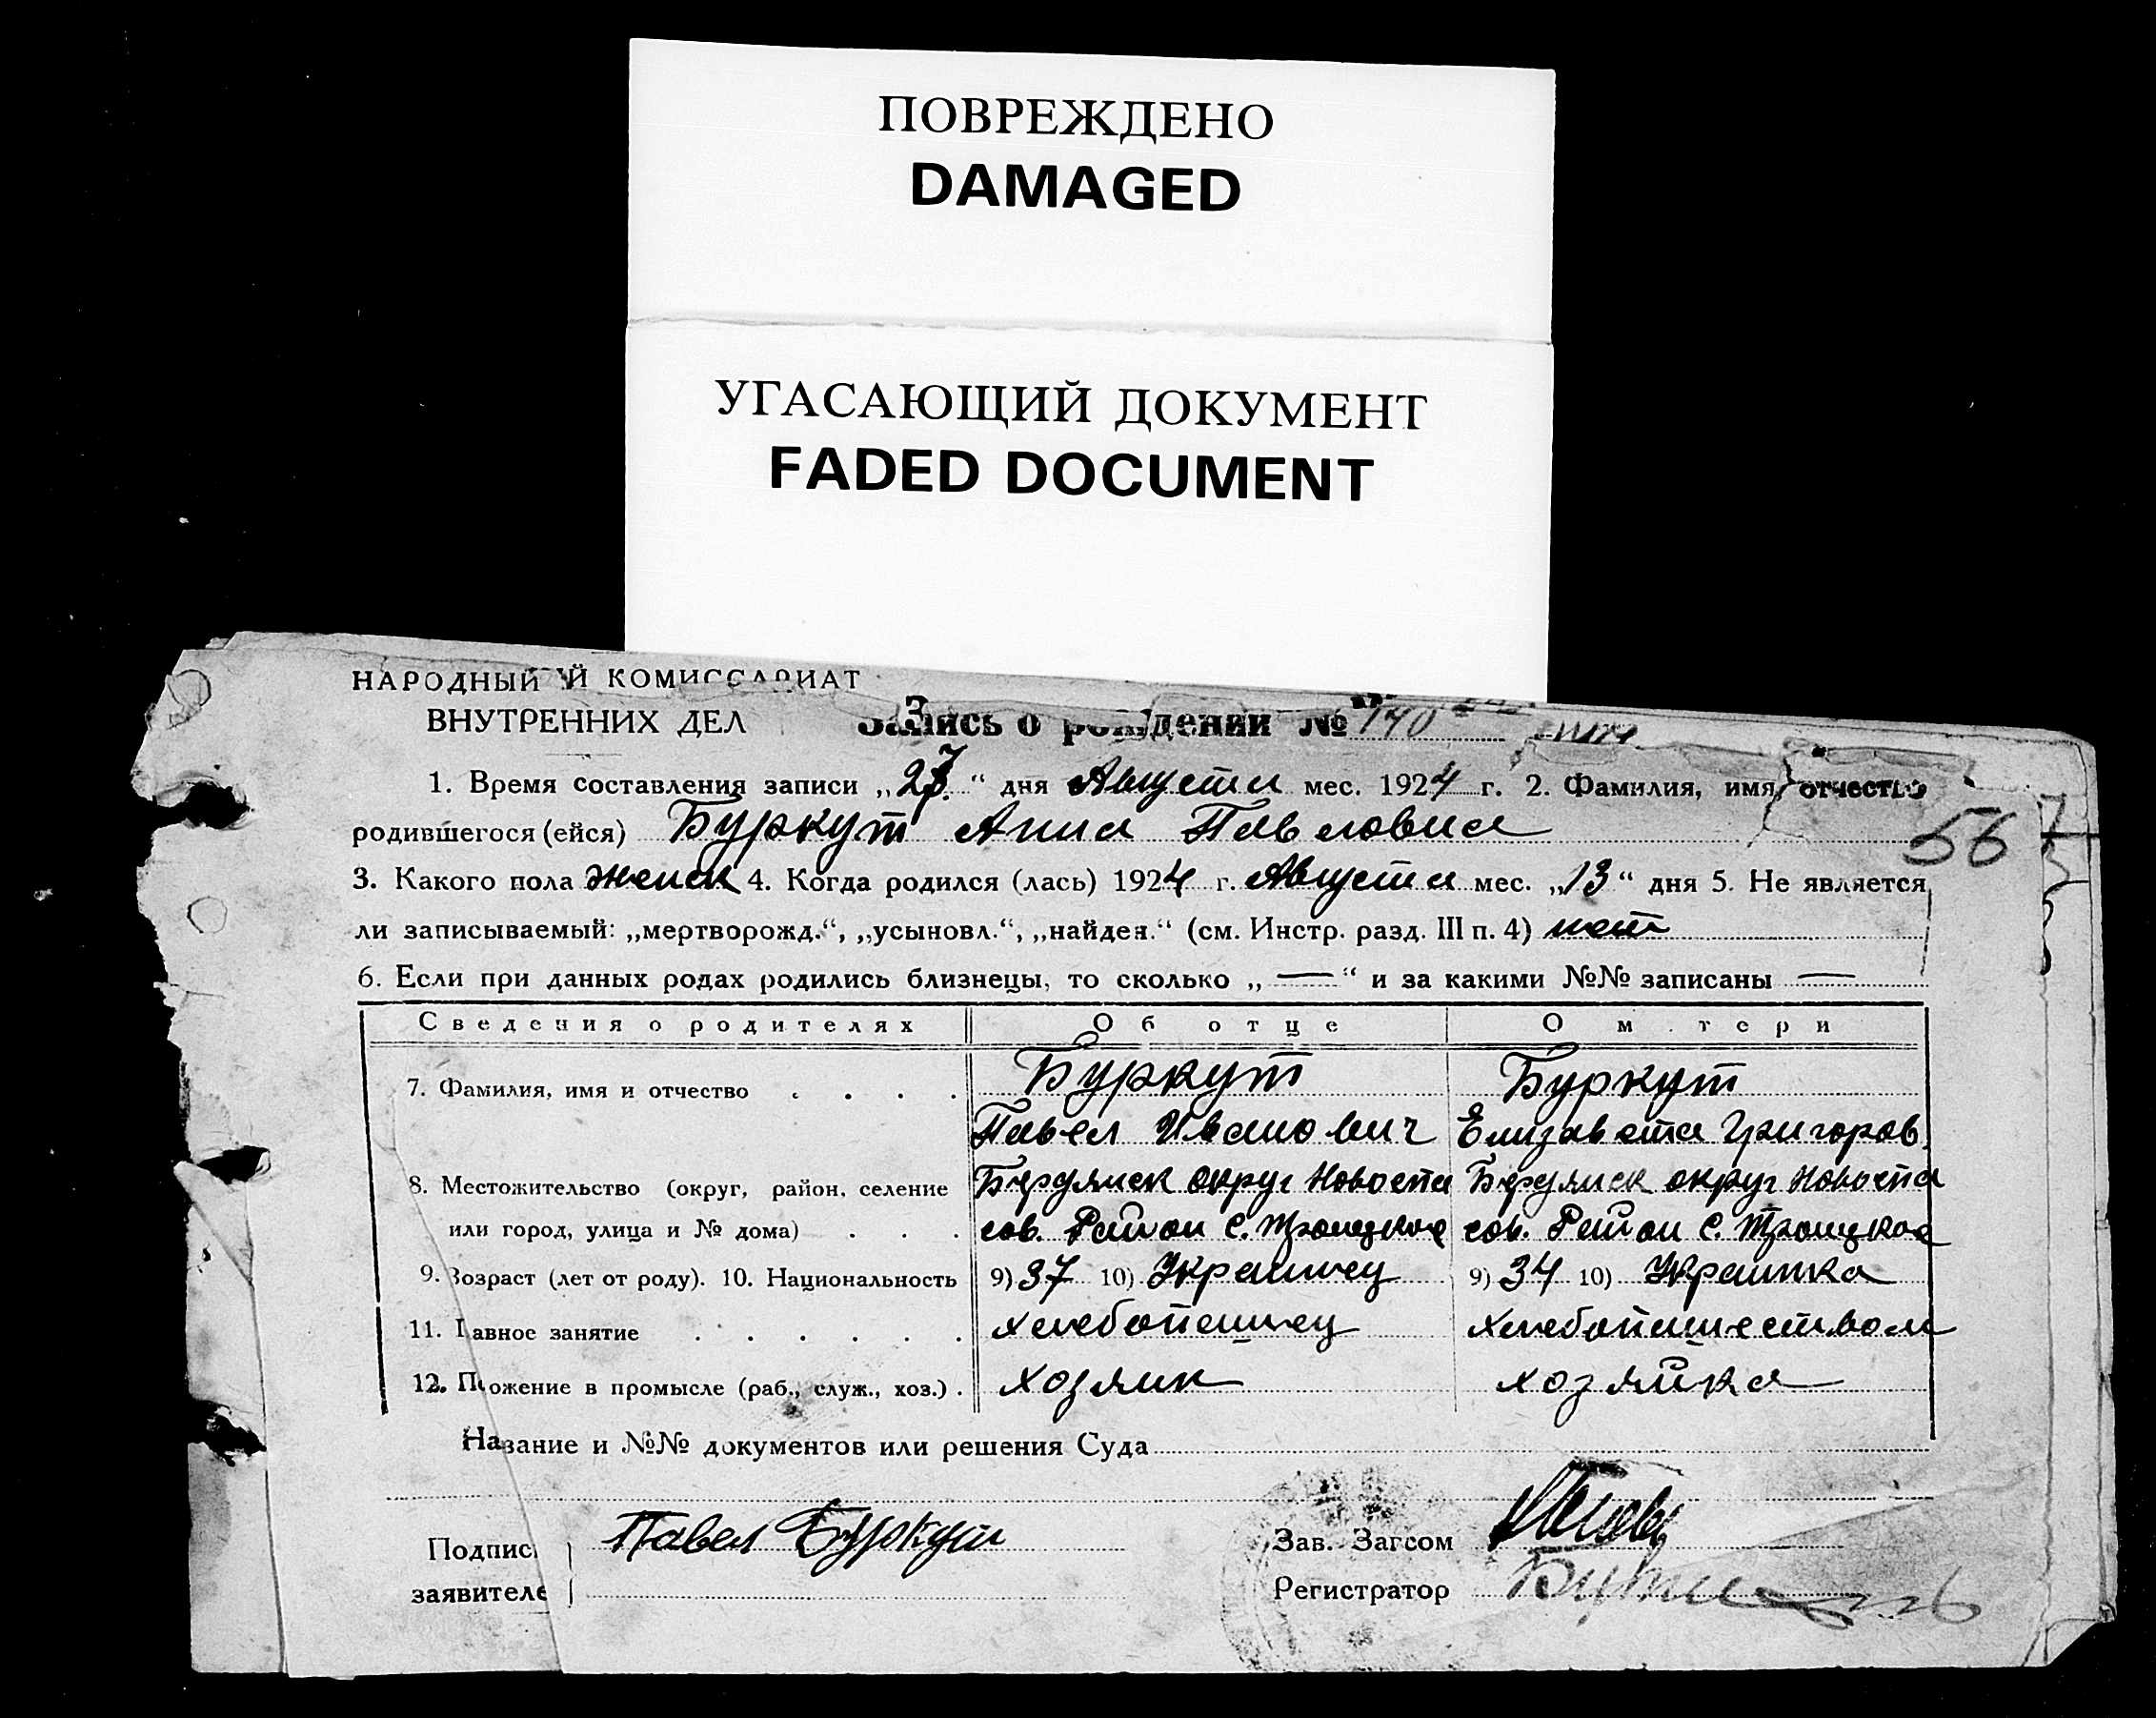 ПОВРЕЖДЕНО
DAMAGED
УГАСАЮЩИЙ ДОКУМЕНТ
FADED DOCUMENT
НАРОДНЫЙ КОМИССАРИАТ
ВНУТРЕННИХ ДЕЛ
Запись о рождении № 140
1. Время составления записи „27“ дня Августа мес. 1924 г. 2. Фамилия, имя, отчество
родившегося (ейся) Буркут Анна Павловна
56
3. Какого пола женск 4. Когда родился (лась) 1924 г. Августа мес. „13“ дня 5. Не является
ли записываемый: „мертворожд.“, „усыновл.“, „найден.“ (см. Инстр. разд. III п. 4) нет
6. Если при данных родах родились близнецы, то сколько „—“ и за какими №№ записаны —
Сведения о родителях Об отце О м тери
7. Фамилия, имя и отчество . . . . Буркут Буркут
Павел Иванович Елизавета Григоров.
8. Местожительство (округ, район, селение Бердянск округ Новоспа Бердянск округ Новоспа
или город, улица и № дома) . . . сов. Район С. Троицкое сов. Район С. Троицкое
9. Возраст (лет от роду). 10. Национальность 9) 37 10) Украинец 9) 34 10) Украинка
11. Г авное занятие . . . . . . хлебопашец хлебопашеством
12. П ожение в промысле (раб., служ., хоз.) . хозяин хозяйка
Название и №№ документов или решения Суда
Подпис Павел Буркут Зав. Загсом
заявителе Регистратор